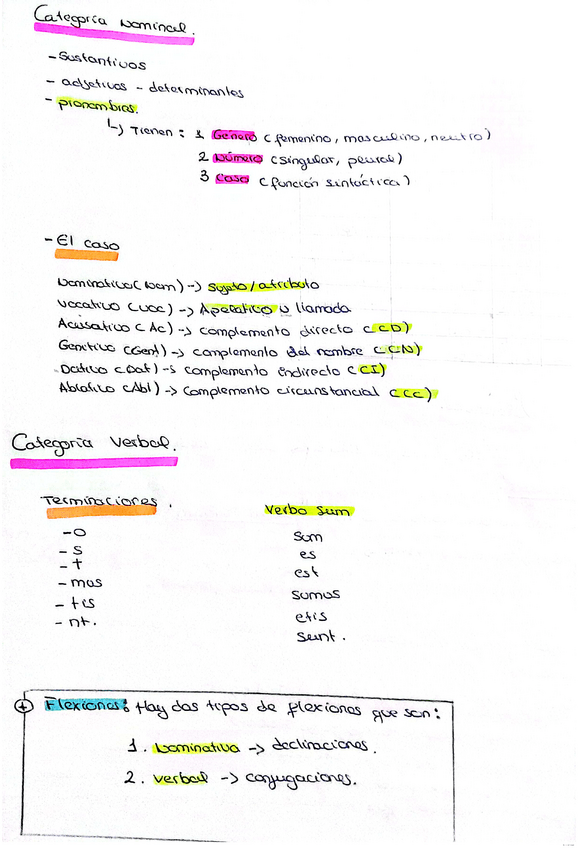 Categoría Nominal.
- Sustantivos
- adjetivos - determinantes
- pronombres.
↳ Tienen: 1 Género (femenino, masculino, neutro)
2 Número (singular, plural)
3 Caso (función sintáctica)
- El caso
Nominativo (Nom) -> Sujeto/atributo
Vocativo (Voc) -> Apelativo o llamada
Acusativo (Ac) -> complemento directo (CD)
Genitivo (Gent) -> complemento del nombre (CN)
Dativo (Dat) -> complemento indirecto (CI)
Ablativo (Abl) -> Complemento circunstancial (CC)
Categoría Verbal.
Terminaciones. Verbo Sum
-o sum
-s es
-t est
-mos sumus
-tis etis
-nt. sunt.
+ Flexiones: Hay dos tipos de flexiones que son:
1. Nominativa -> declinaciones.
2. Verbal -> conjugaciones.